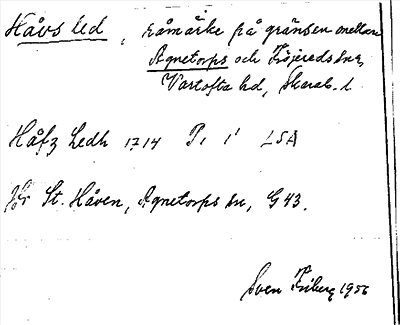 Håvs Led, råmärke på gränsen mellan
Agnetorps och Fröjereds snr,
Vartofta hd, Skarab. l.
Håfz Ledh 1714 P, 1' LSA
Jfr St. Håven, Agnetorps sn, G 43.
Sven Friberg 1956